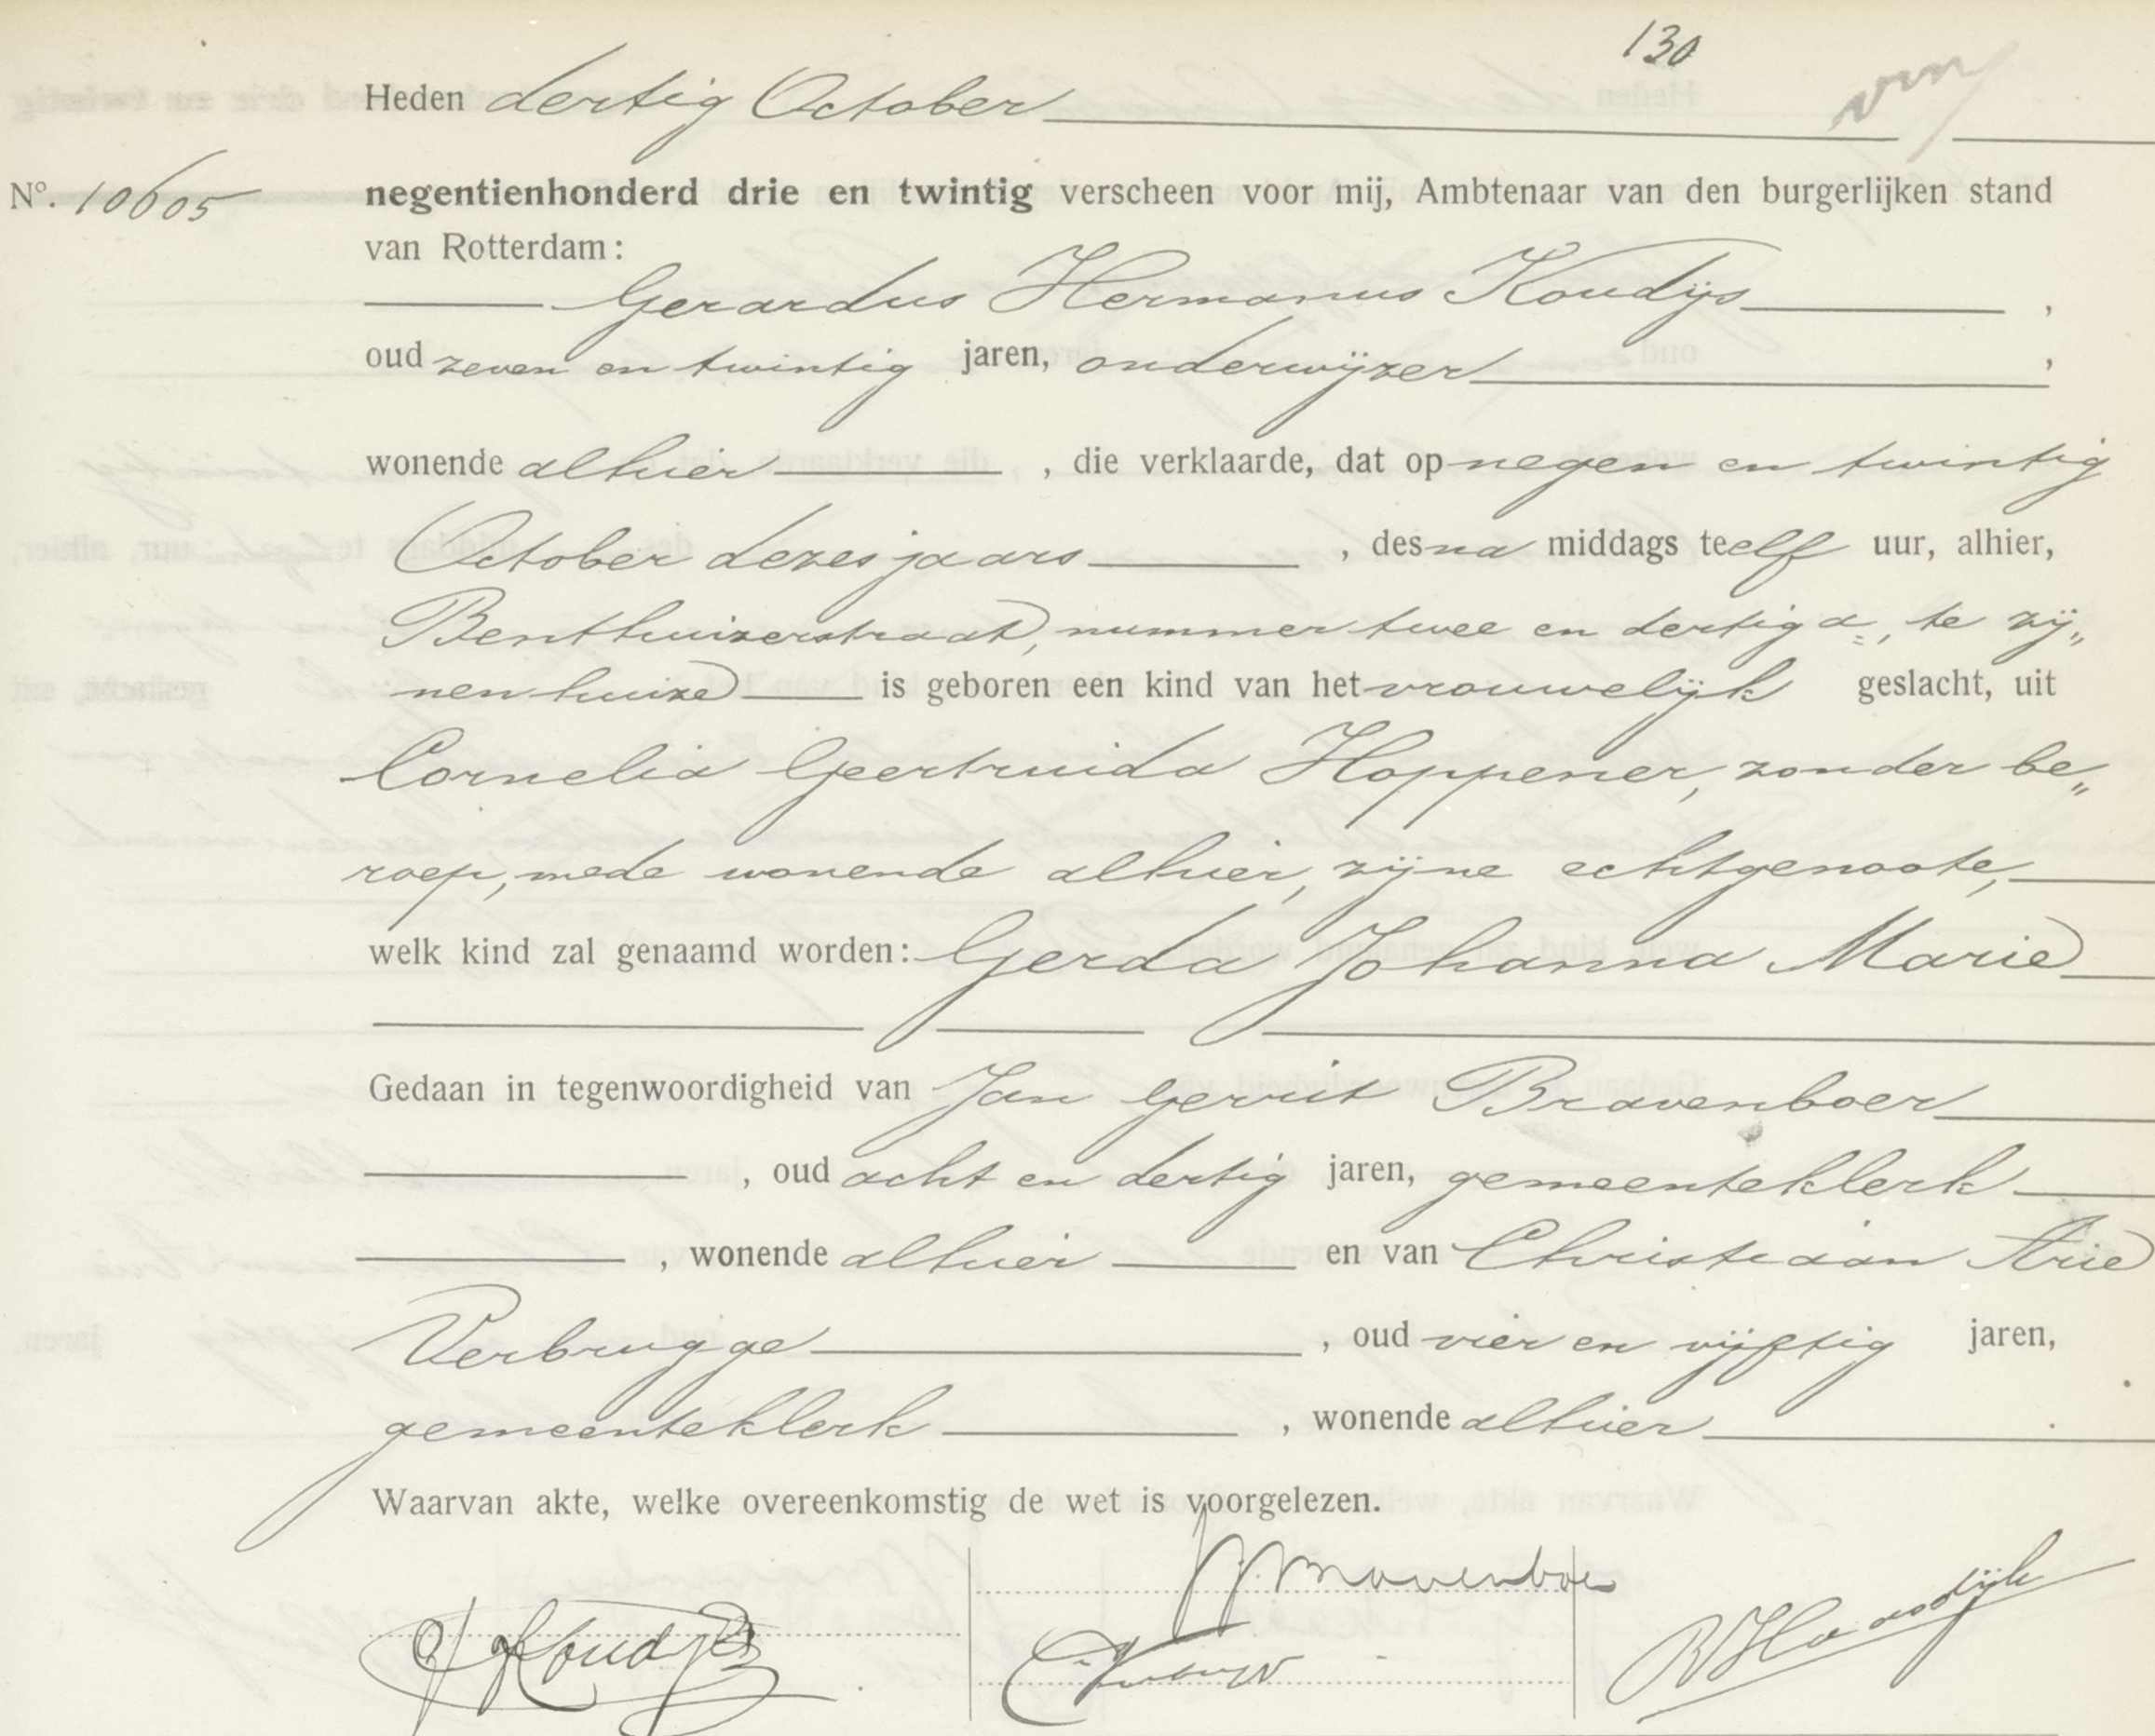 130
Heden dertig October
Nº. 10605 negentienhonderd drie en twintig verscheen voor mij, Ambtenaar van den burgerlijken stand
van Rotterdam:
Gerardus Hermanus Koudijs,
oud zeven en twintig jaren, onderwijzer,
wonende alhier, die verklaarde, dat op negen en twintig
October dezes jaars, des na middags te elf uur, alhier,
Benthuizerstraat, nummer twee en dertig a, te zij„
nen huize is geboren een kind van het vrouwelijk geslacht, uit
Cornelia Geertruida Hoppener, zonder be„
roep, mede wonende alhier, zijne echtgenoote,
welk kind zal genaamd worden: Gerda Johanna Marie
Gedaan in tegenwoordigheid van Jan Gerrit Bravenboer
, oud acht en dertig jaren, gemeenteklerk
, wonende alhier en van Christiaan Arie
Verbrugge, oud vier en vijftig jaren,
gemeenteklerk, wonende alhier.
Waarvan akte, welke overeenkomstig de wet is voorgelezen.
Koudijs